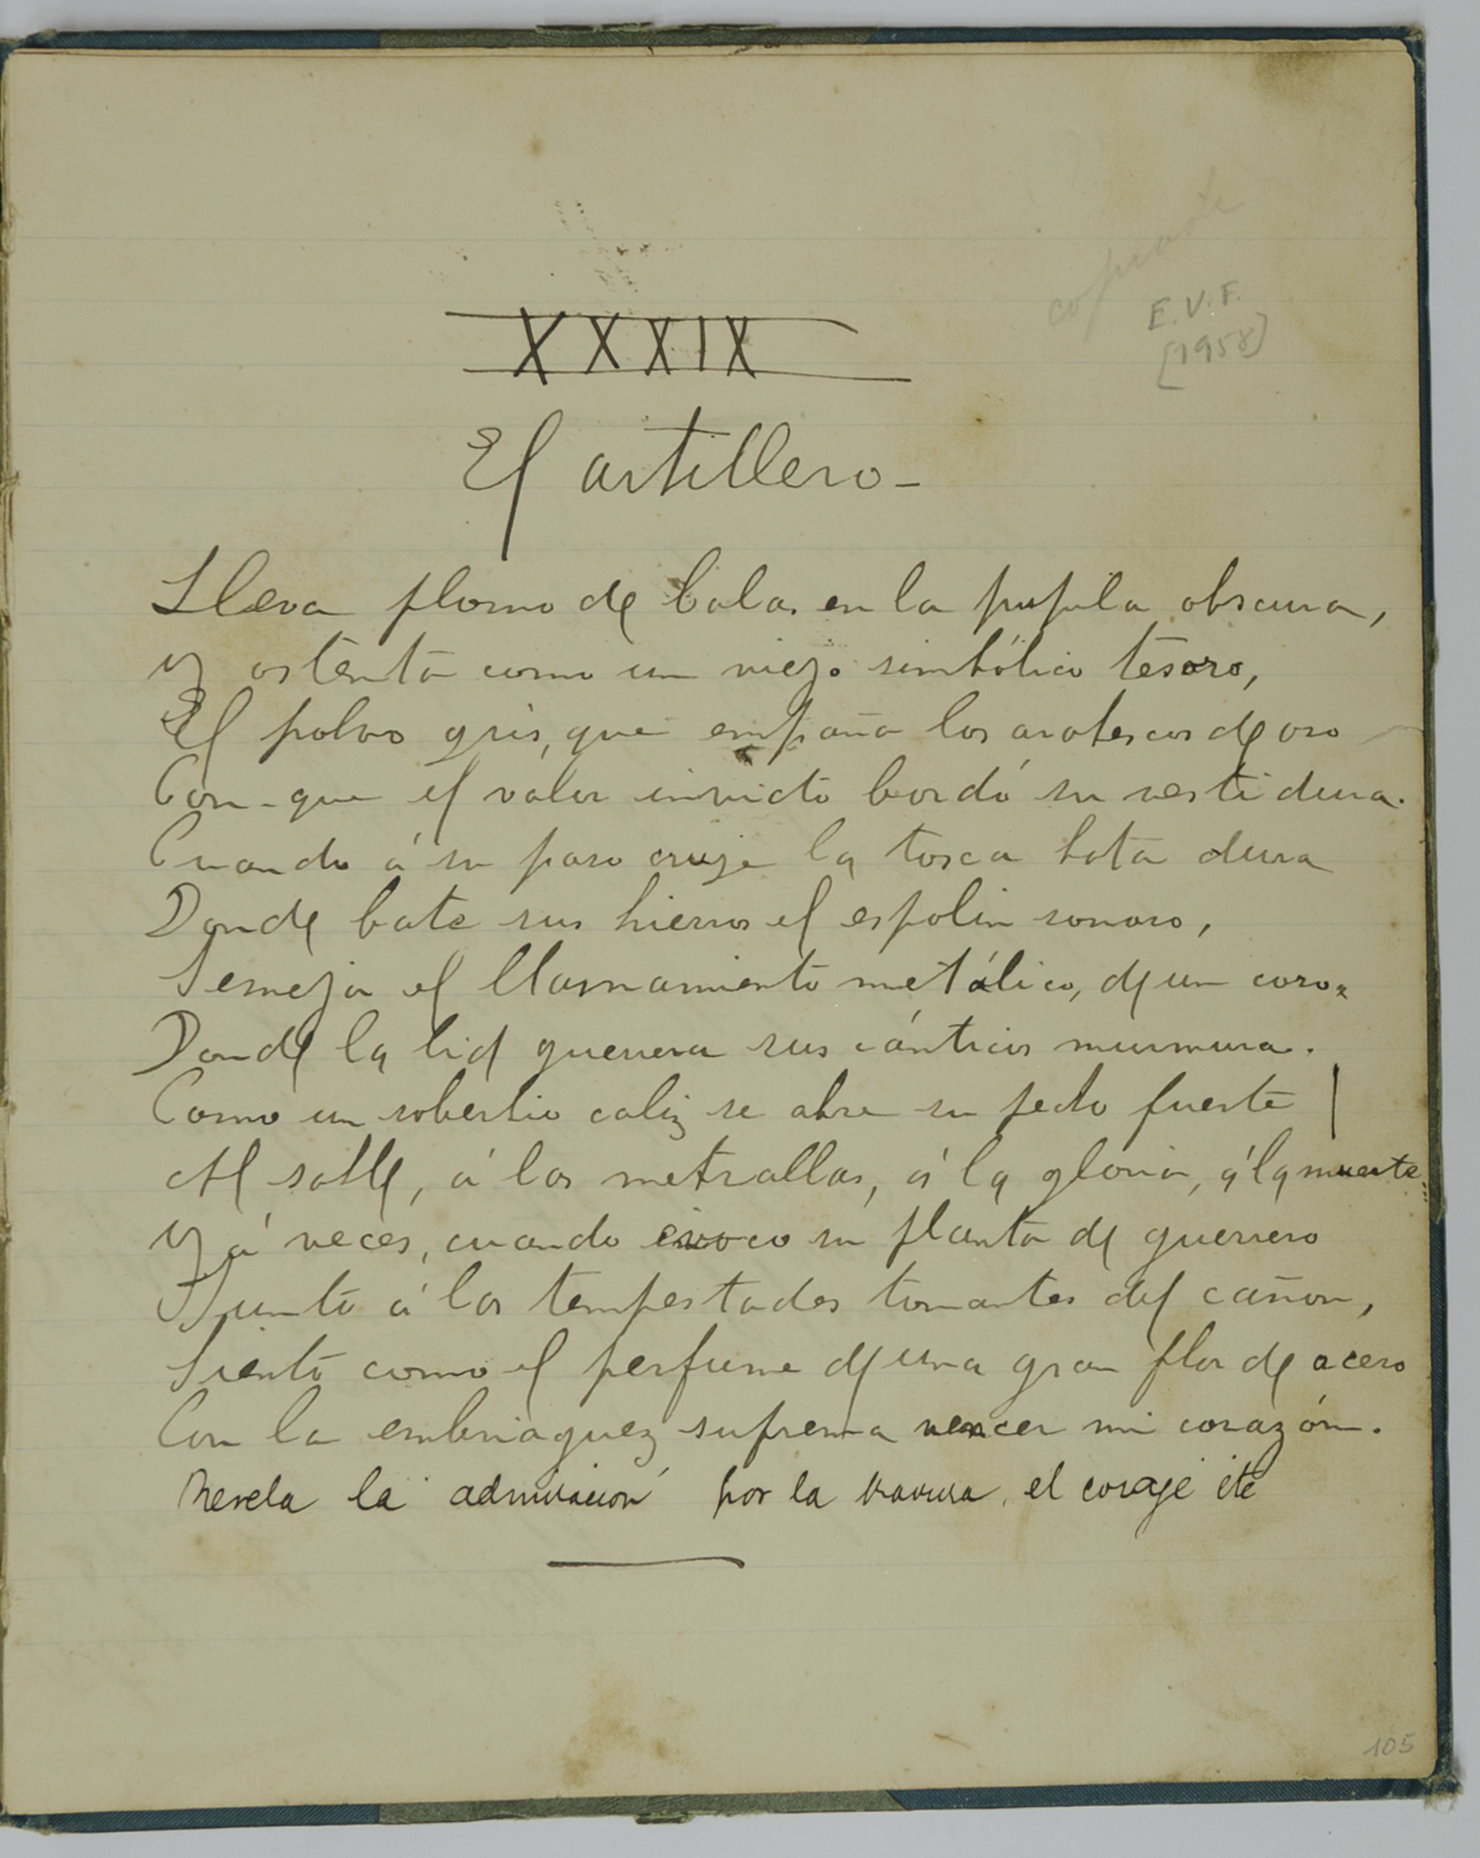 copiada
E. V. F.
[1958]
XXXIX
El artillero-
Lleva plomo de balas en la pupila obscura,
y ostenta como un viejo simbólico tesoro,
El polvo gris, que empaña los arabescos de oro
Con-que el valor invicto bordó su vestidura.
Cuando á su paso cruje la tosca bota dura
Donde bate sus hierros el espolin sonoro,
Semeja el llamamiento metálico, de un coro
Donde la lid guerrera sus cánticos murmura.
Como un soberbio caliz se abre su pecho fuerte
Al sable, á las metrallas, á la gloria, á la muerte...
Y á veces, cuando evoco su planta de guerrero
Junto á las tempestades tonantes del cañon,
Siento como el perfume de una gran flor de acero
Con la embriaguez suprema vencer mi corazón.
Revela la admiración por la bravura, el coraje etc
105